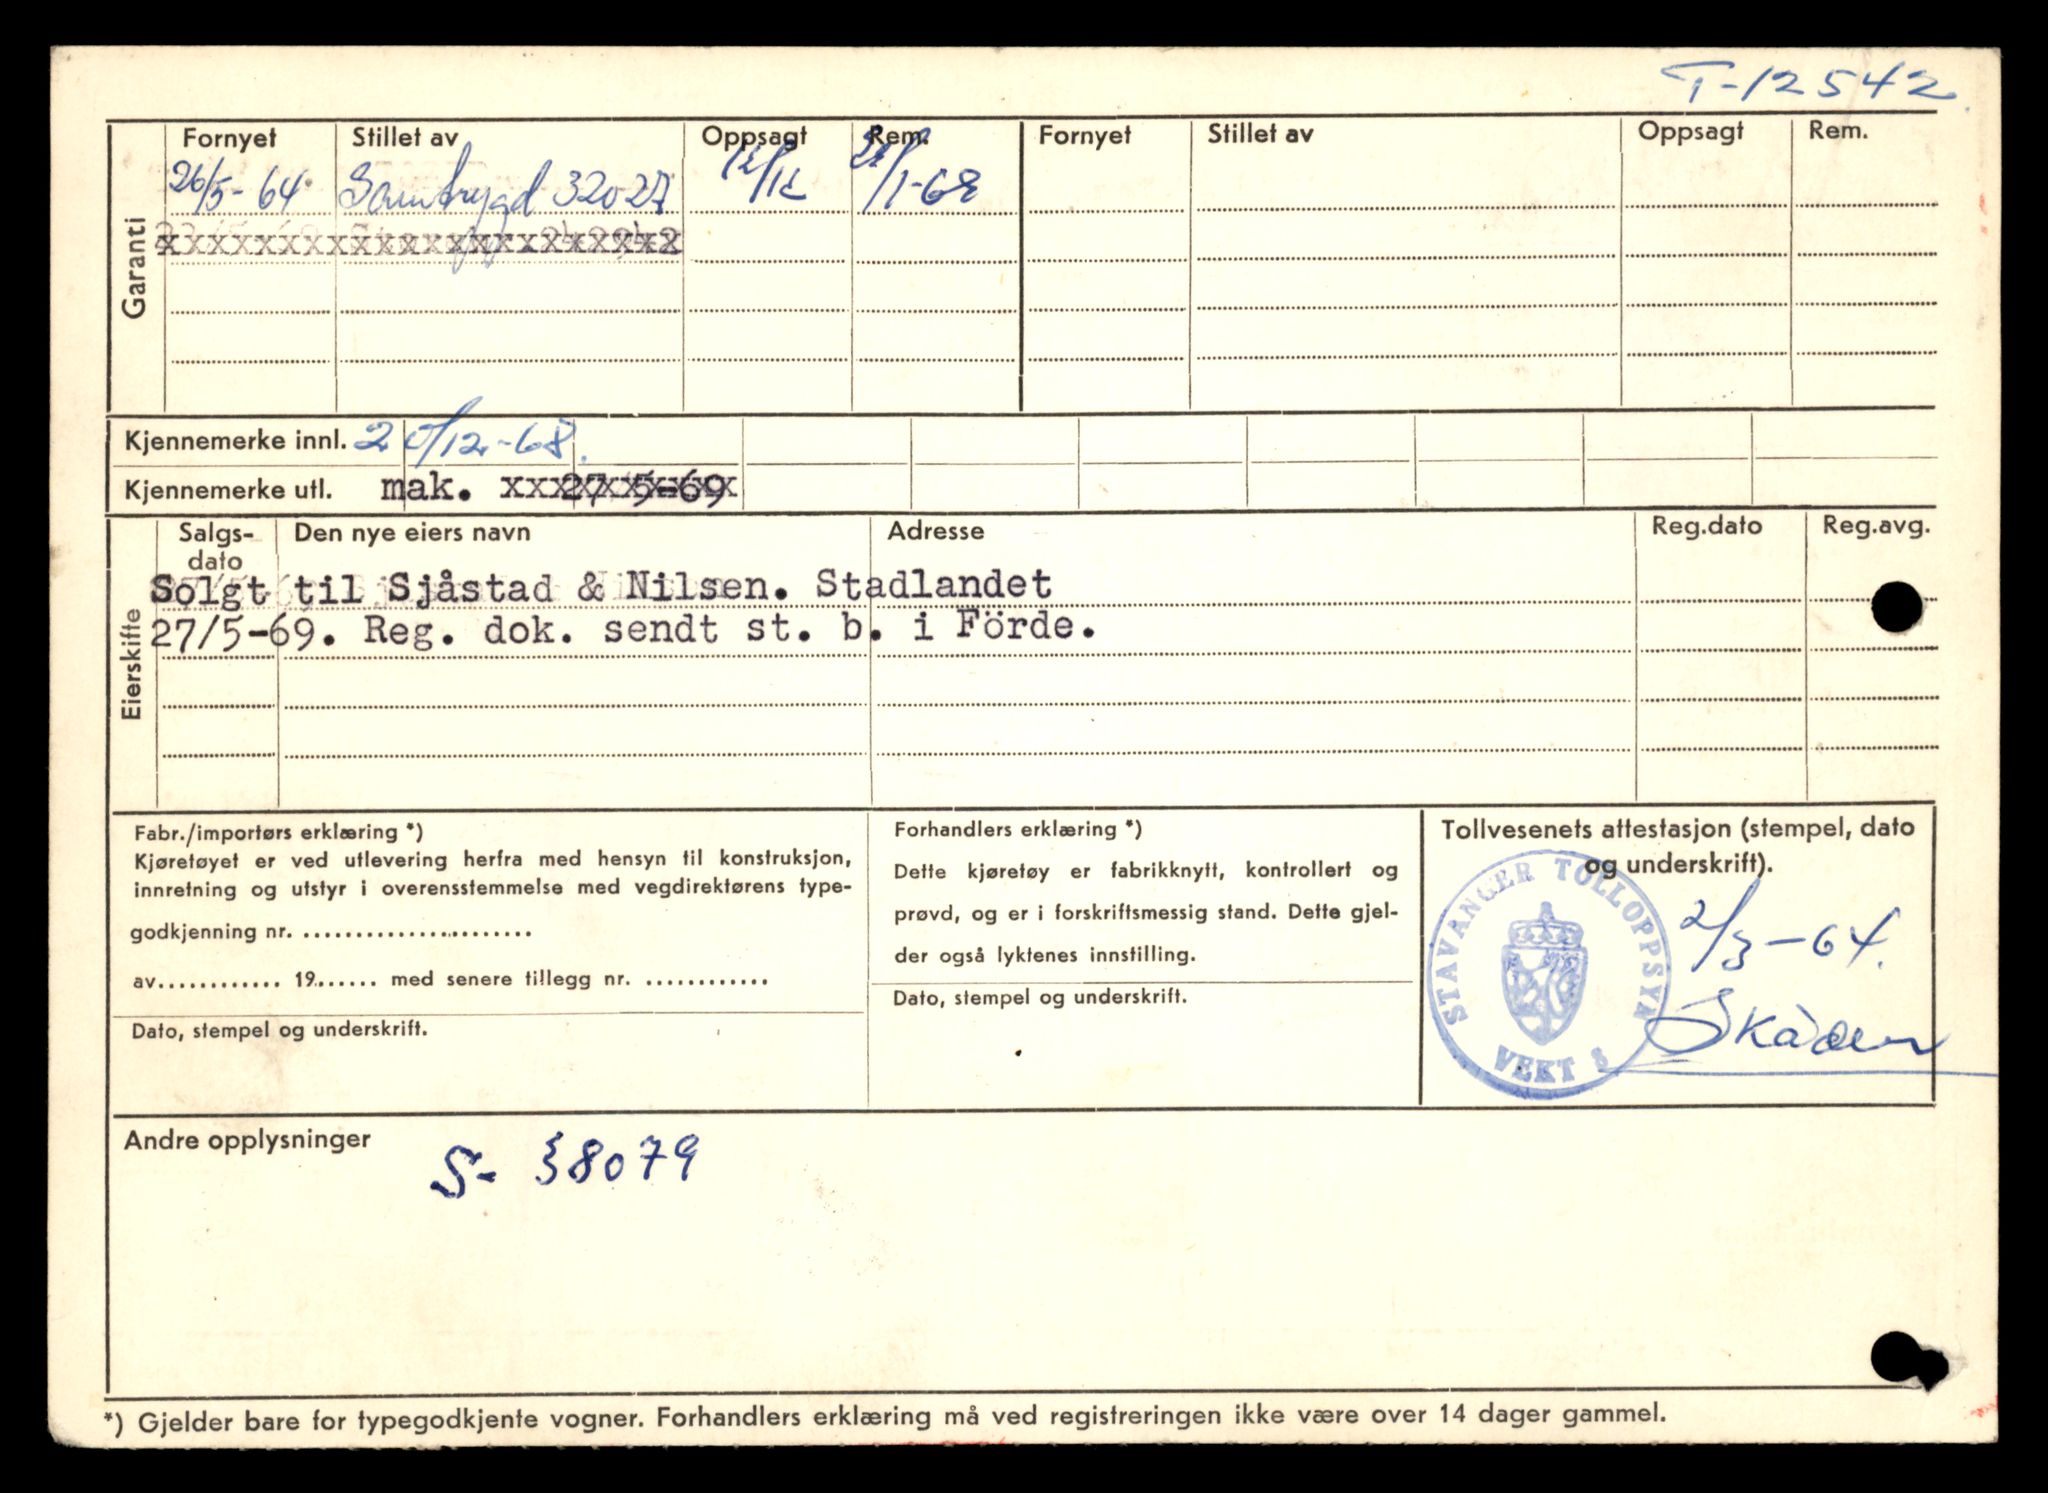 T-12542
Garanti
Fornyet Stillet av Oppsagt Rem. Fornyet Stillet av Oppsagt Rem.
26/5-64 Samtrygd 32027 /1-68
Kjennemerke innl. 20/12-68.
Kjennemerke utl. mak. 27 5-69
Eierskifte
Salgs- Den nye eiers navn Adresse Reg.dato Reg.avg.
dato
Solgt til Sjåstad & Nilsen. Stadlandet
27/5-69. Reg. dok. sendt st. b. i Förde.
Fabr./importørs erklæring *)
Kjøretøyet er ved utlevering herfra med hensyn til konstruksjon,
innretning og utstyr i overensstemmelse med vegdirektørens type-
godkjenning nr. ........................
av............ 19...... med senere tillegg nr. ............
Dato, stempel og underskrift.
Forhandlers erklæring *)
Dette kjøretøy er fabrikknytt, kontrollert og
prøvd, og er i forskriftsmessig stand. Dette gjel-
der også lyktenes innstilling.
Dato, stempel og underskrift.
Tollvesenets attestasjon (stempel, dato
og underskrift).
STAVANGER TOLLOPPSYN
VEKT 8
2/3-64.
Andre opplysninger
S- 38079
*) Gjelder bare for typegodkjente vogner. Forhandlers erklæring må ved registreringen ikke være over 14 dager gammel.